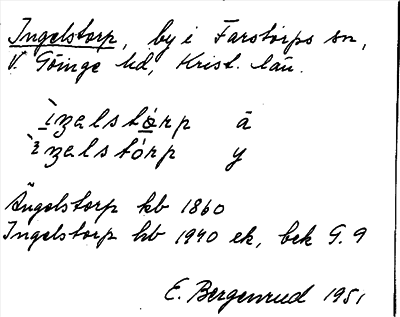 Ingelstorp, by i Farstorps sn,
V. Göinge hd, Krist. län.
ìzelstòrp ä
ìzelstórp y
Ängelstorp kb 1860
Ingelstorp kb 1940 ek, bek G. 9
E. Bergenrud 1951